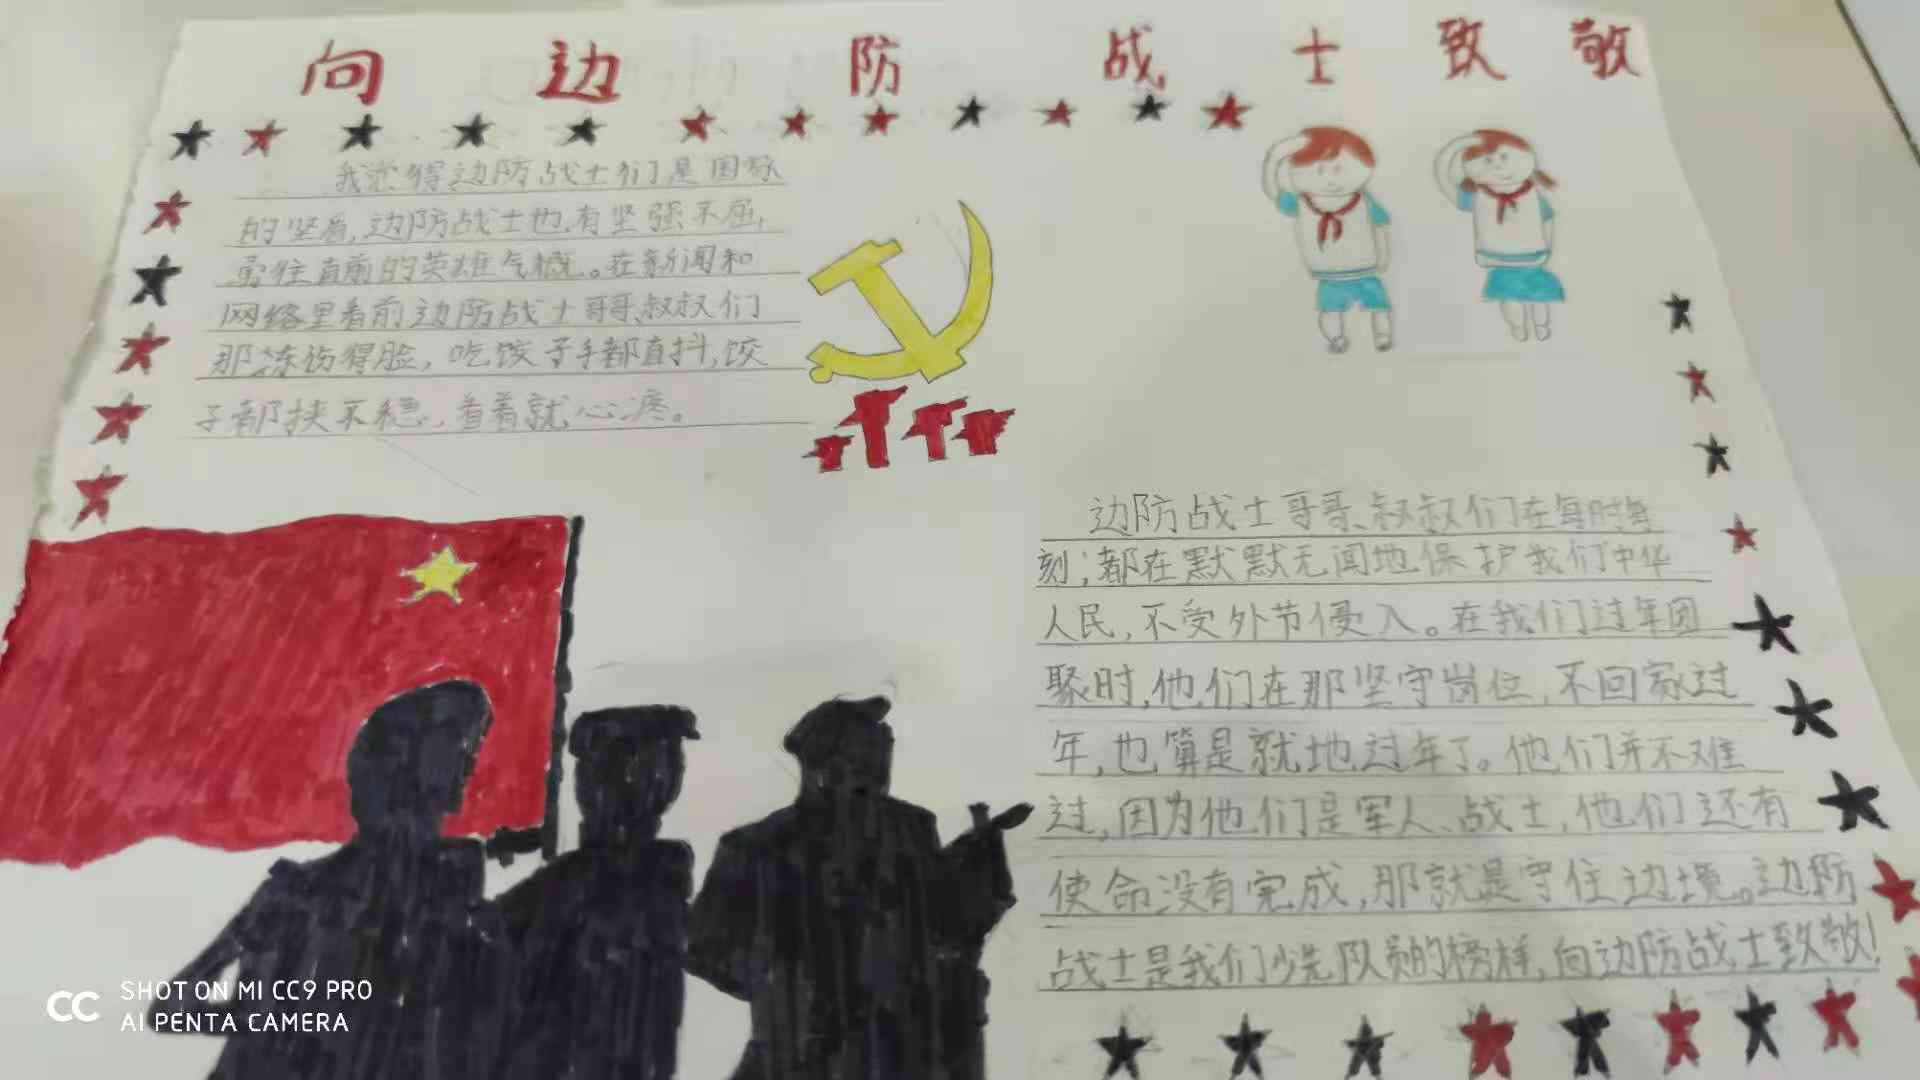 向边防战士致敬
我觉得边防战士们是国家
的坚盾,边防战士也有坚强不屈,
勇往直前的英雄气概。在新闻和
网络里看前边防战士哥哥、叔叔们
那冻伤得脸,吃饺子手都直抖,饺
子都挟不稳,看着就心疼。
边防战士哥哥、叔叔们在每时每
刻;都在默默无闻地保护我们中华
人民,不受外节侵入。在我们过年团
聚时,他们在那坚守岗位,不回家过
年,也算是就地过年了。他们并不难
过,因为他们是军人、战士,他们还有
使命没有完成,那就是守住边境。边防
战士是我们少先队员的榜样,向边防战士致敬!
SHOT ON MI CC9 PRO
AI PENTA CAMERA